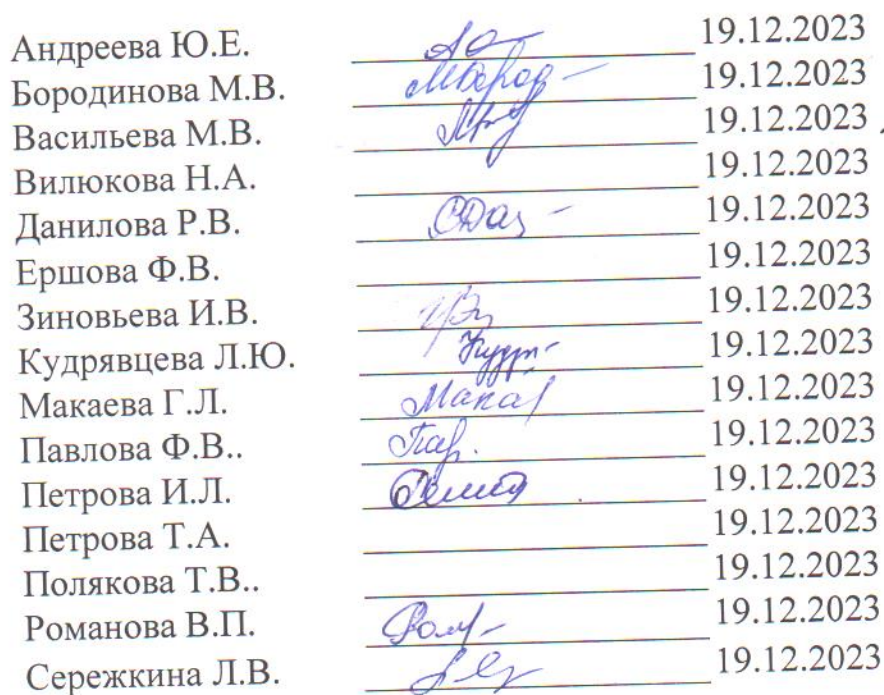 Андреева Ю.Е. 19.12.2023
Бородинова М.В. 19.12.2023
Васильева М.В. 19.12.2023
Вилюкова Н.А. 19.12.2023
Данилова Р.В. 19.12.2023
Ершова Ф.В. 19.12.2023
Зиновьева И.В. 19.12.2023
Кудрявцева Л.Ю. 19.12.2023
Макаева Г.Л. 19.12.2023
Павлова Ф.В.. 19.12.2023
Петрова И.Л. 19.12.2023
Петрова Т.А. 19.12.2023
Полякова Т.В.. 19.12.2023
Романова В.П. 19.12.2023
Сережкина Л.В. 19.12.2023